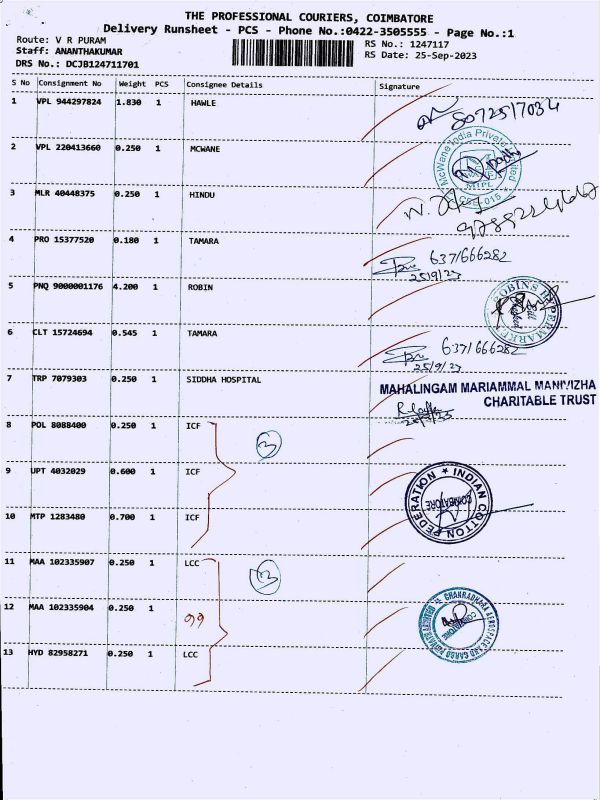 THE PROFESSIONAL COURIERS, COIMBATORE
Delivery Runsheet - PCS - Phone No.:0422-3505555 - Page No.:1
Route: V R PURAM
RS No.: 1247117
Staff: ANANTHAKUMAR
RS Date: 25-Sep-2023
DRS No.: DCJB124711701
S No Consignment No Weight PCS Consignee Details Signature
1 VPL 944297824 1.830 1 HAWLE
8072517034
2 VPL 220413660 0.250 1 MCWANE
McWane India Private Limited
MIPL
3 MLR 40448375 0.250 1 HINDU
4 PRO 15377520 0.180 1 TAMARA
637166282
25/9/23
5 PNQ 9000001176 4.200 1 ROBIN
6 CLT 15724694 0.545 1 TAMARA
637166282
25/9/23
7 TRP 7079303 0.250 1 SIDDHA HOSPITAL
MAHALINGAM MARIAMMAL MANIVIZHA
CHARITABLE TRUST
8 POL 8088400 0.250 1 ICF
3
9 UPT 4032029 0.600 1 ICF
INDIAN COTTON FEDERATION
COIMBATORE
10 MTP 1283480 0.700 1 ICF
11 MAA 102335907 0.250 1 LCC
3
12 MAA 102335904 0.250 1 99
COIMBATORE
13 HYD 82958271 0.250 1 LCC